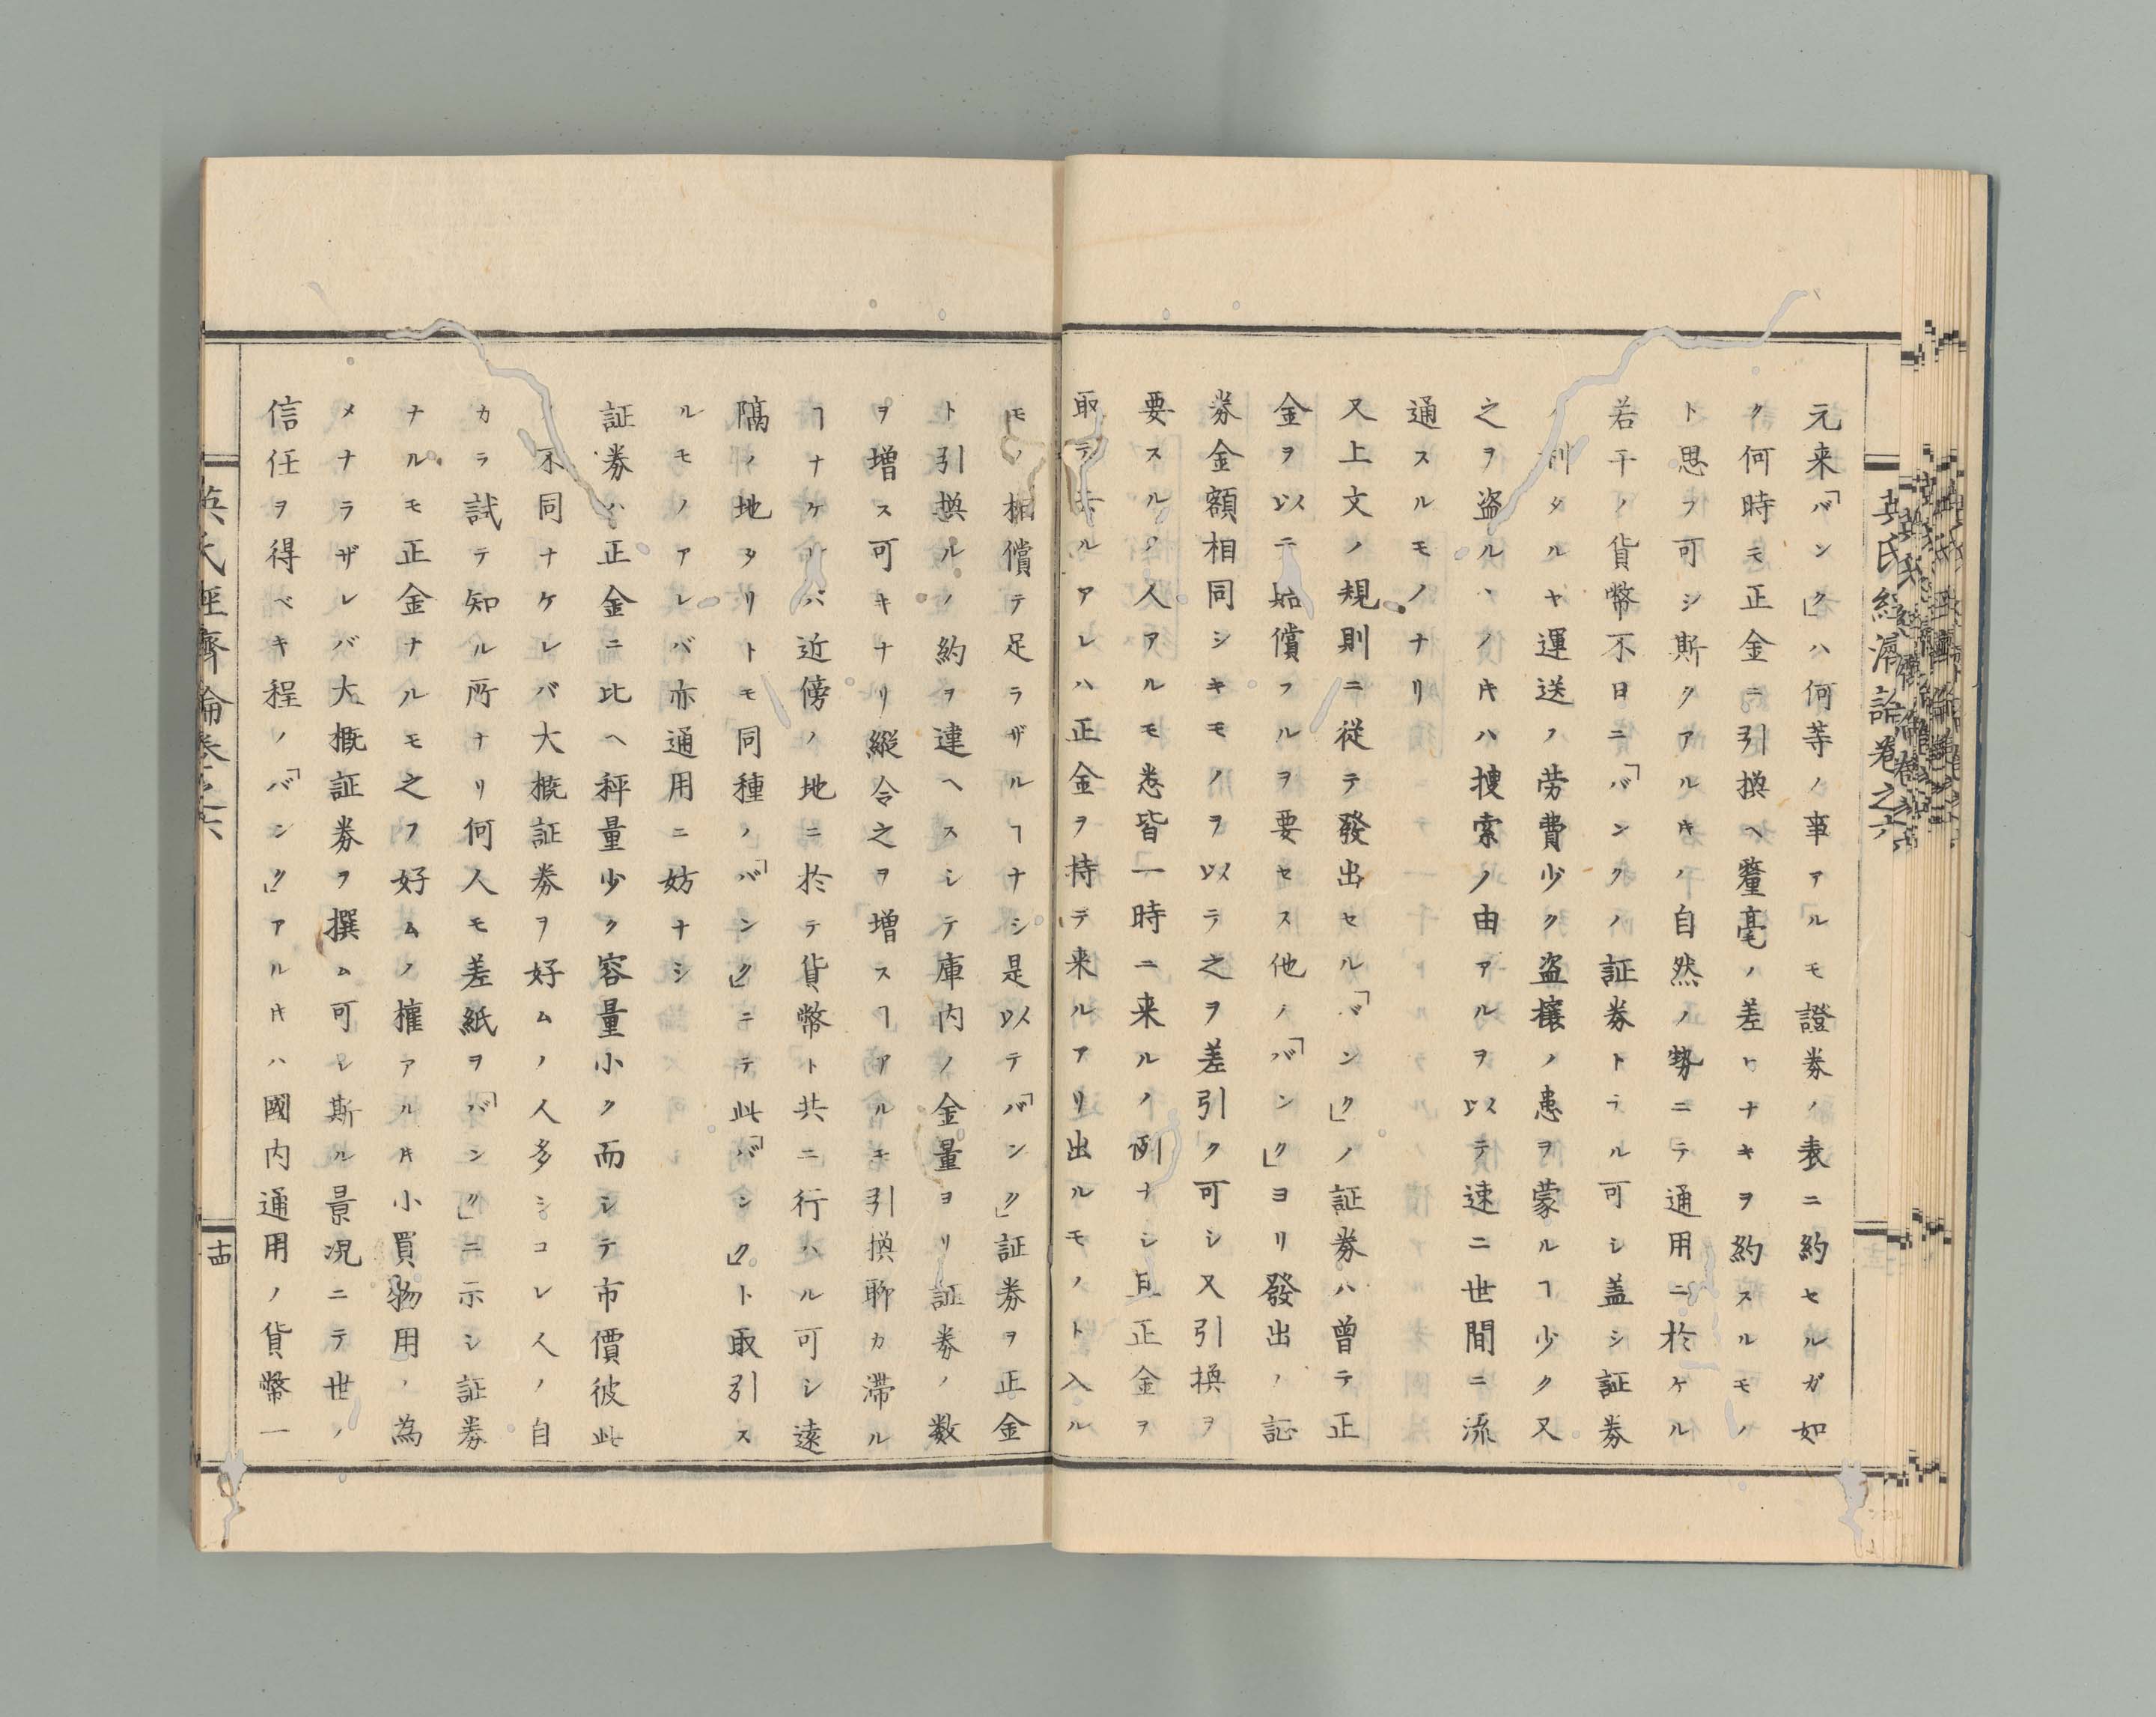 英氏經濟論卷之六
元来「バンク」ハ何等ノ事アルモ證券ノ表ニ約セルガ如
ク何時モ正金ニ引換ヘ釐毫ノ差ヒナキヲ約スルモノ
ト思フ可シ斯クアルキノ自然ノ勢ニテ通用ニ於ケル
若干ノ貨幣不日ニ「バンク」ノ証券トラル可シ蓋シ証券
ノ利タルヤ運送ノ労費少ク盗攘ノ患ヲ蒙ルヿ少ク又
之ヲ盗ルヽノキハ捜索ノ由アルヲ以テ速ニ世間ニ流
通スルモノナリ
又上文ノ規則ニ従テ發出セル「バンク」ノ証券ハ曽テ正
金ヲ以ニ償フルヲ要セス他ノ「バンク」ヨリ發出ノ証
券金額相同シキモノヲ以テ之ヲ差引ク可シ又引換ヲ
要スルノ人アルモ悉皆一時ニ来ルノ例ナシ且正金ヲ
取テ去ルアレハ正金ヲ持テ来ルアリ出ルモノト入ル
モノ相償テ足ラザルヿナシ是以テ「バンク」証券ヲ正金
ト引換ルノ約ヲ違ヘスシテ庫内ノ金量ヨリ証券ノ数
ヲ増ス可キナリ縦令之ヲ増スヿアルモ引換聊カ滞ル
ヿナケリバ近傍ノ地ニ於テ貨幣ト共ニ行ハル可シ遠
隔ノ地タリトモ同種ノ「バンク」ニテ此「バンク」ト取引ス
ルモノアレバ亦通用ニ妨ナシ
証券ハ正金ニ比ヘ秤量少ク容量小ク而シテ市價彼此
ノ不同ナケレバ大概証券ヲ好ムノ人多シコレ人ノ自
カラ試テ知ル所ナリ何人モ差紙ヲ「バンク」ニ示シ証券
ナルモ正金ナルモ之フ好ムノ權アルキ小買物用ノ為
メナラザレバ大概証券ヲ撰ム可シ斯ル景况ニテ世ノ
信任ヲ得ベキ程ノ「バンク」アルキハ國内通用ノ貨幣一
英氏經濟論卷之六
十四